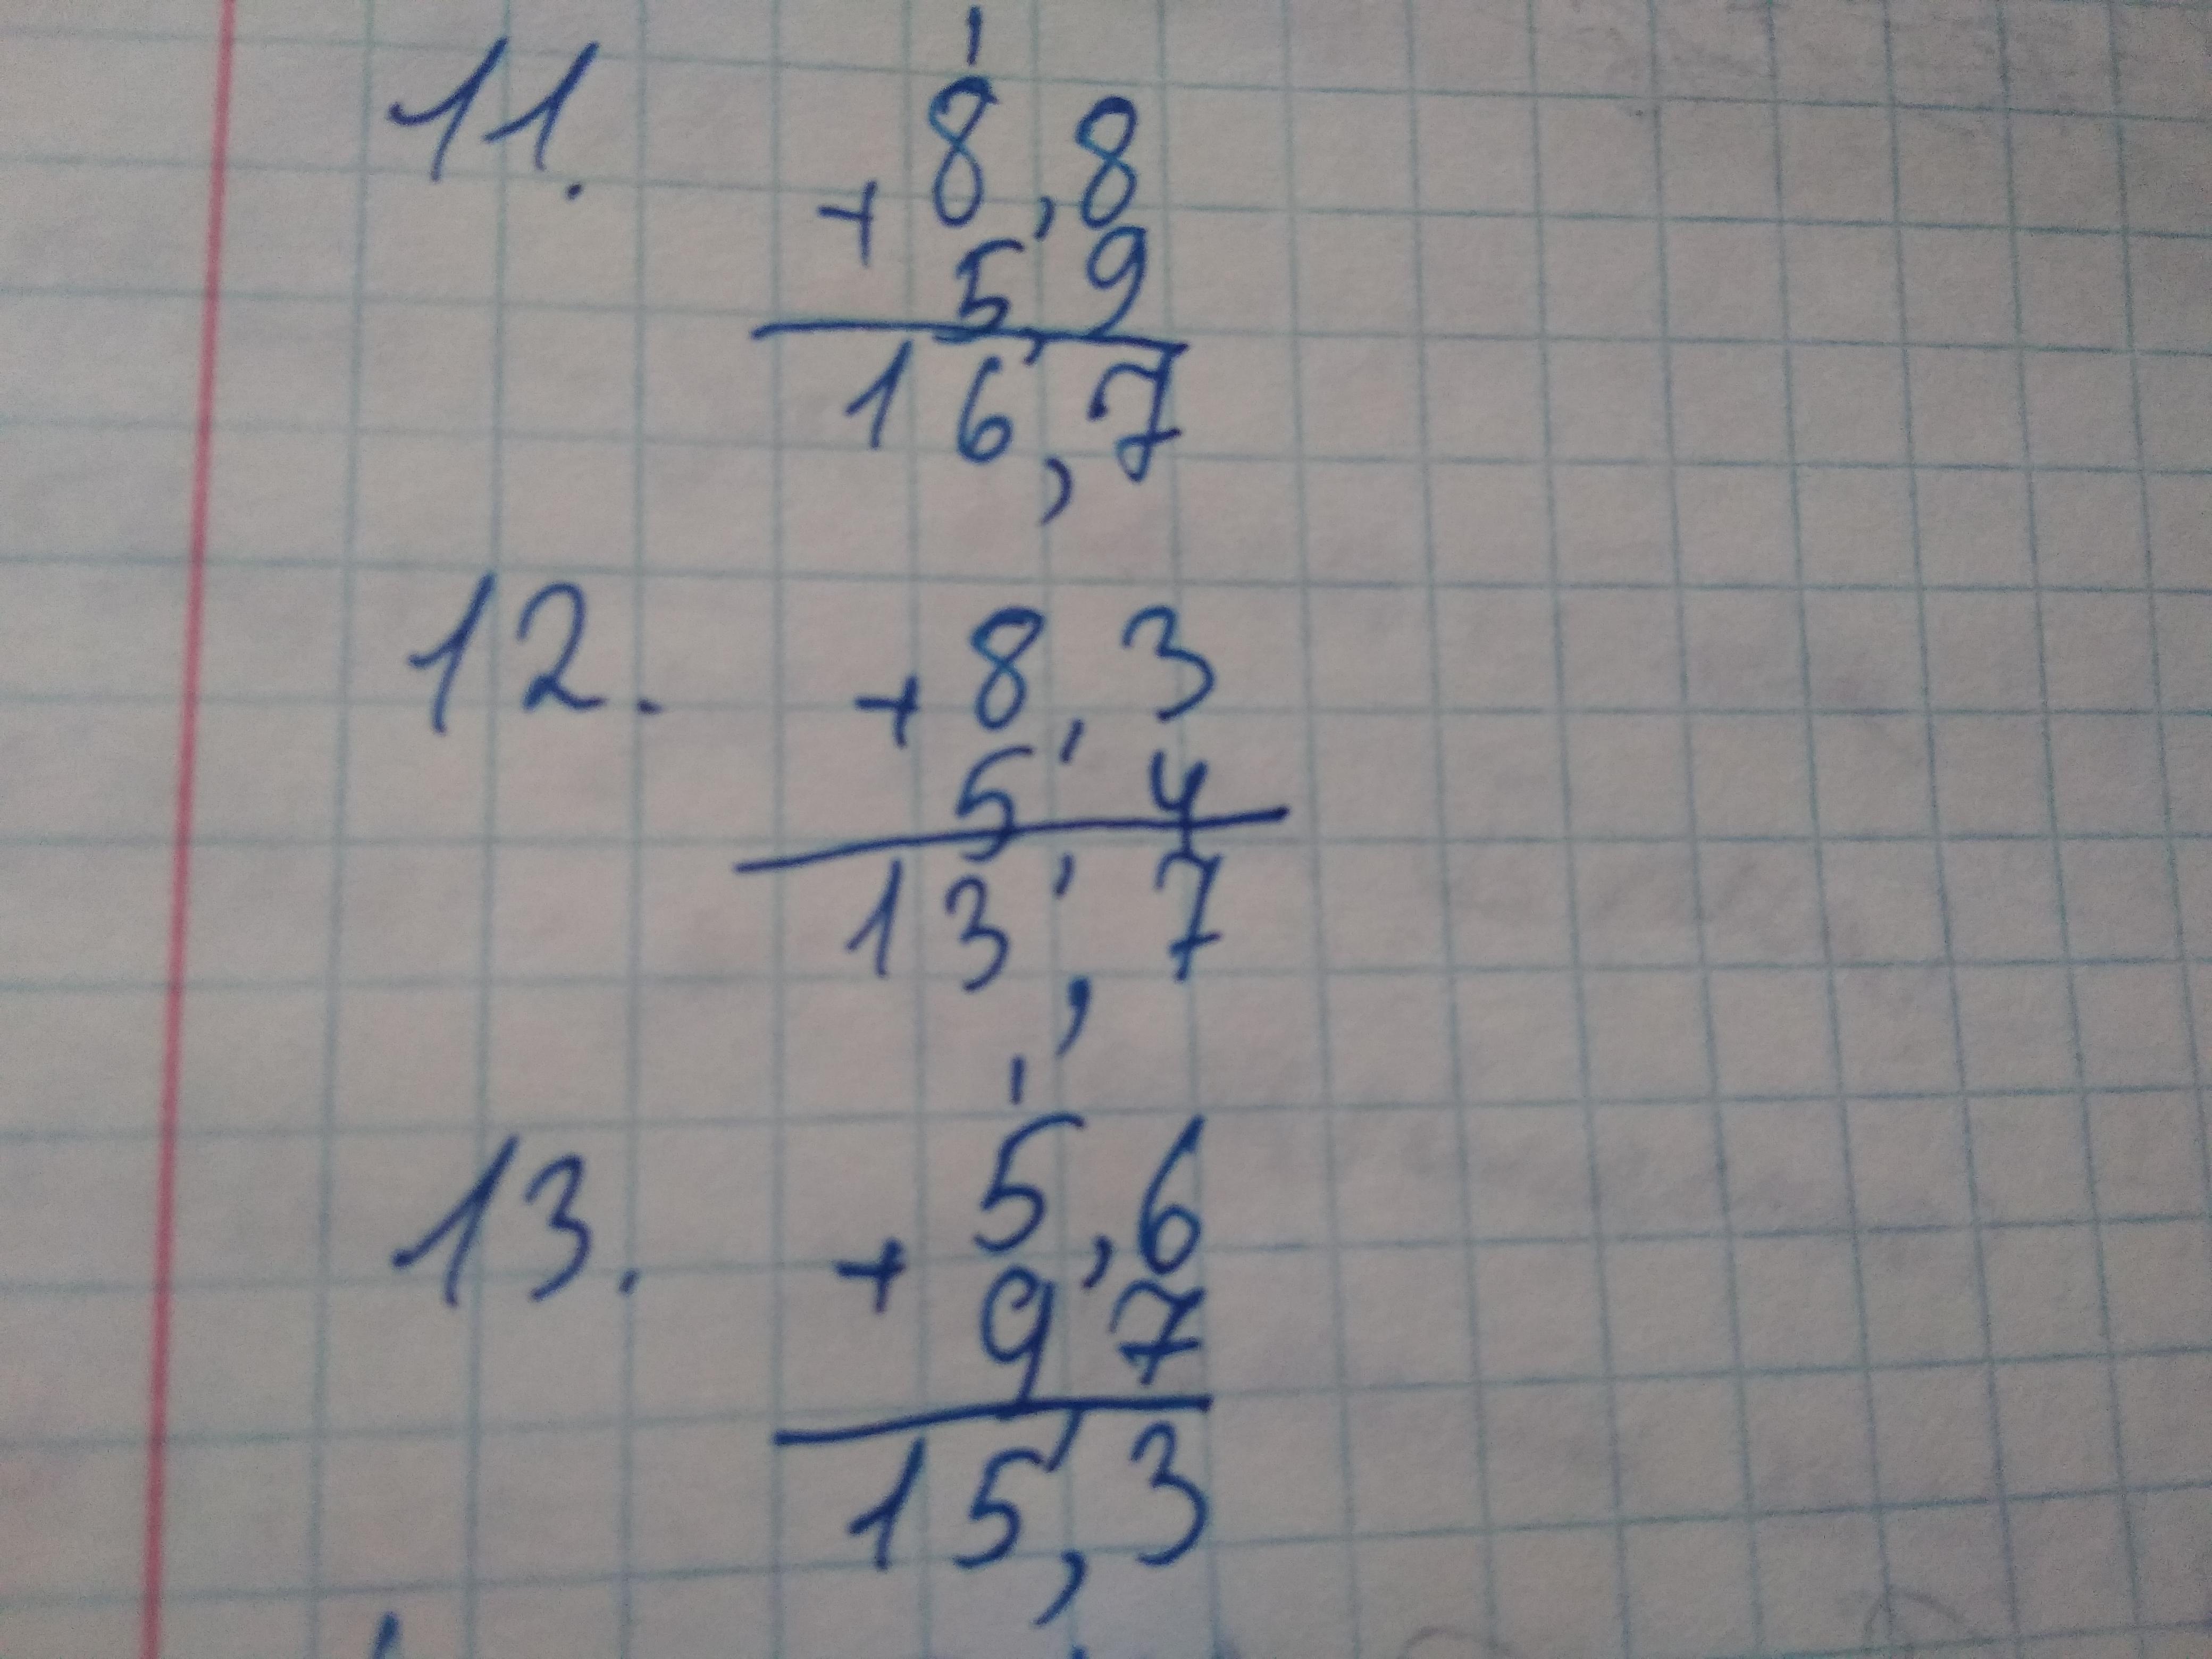 1
11. 8,8
+ 5,9
16,7
12. + 8,3
5,4
13,7
1
13. 5,6
+ 9,7
15,3